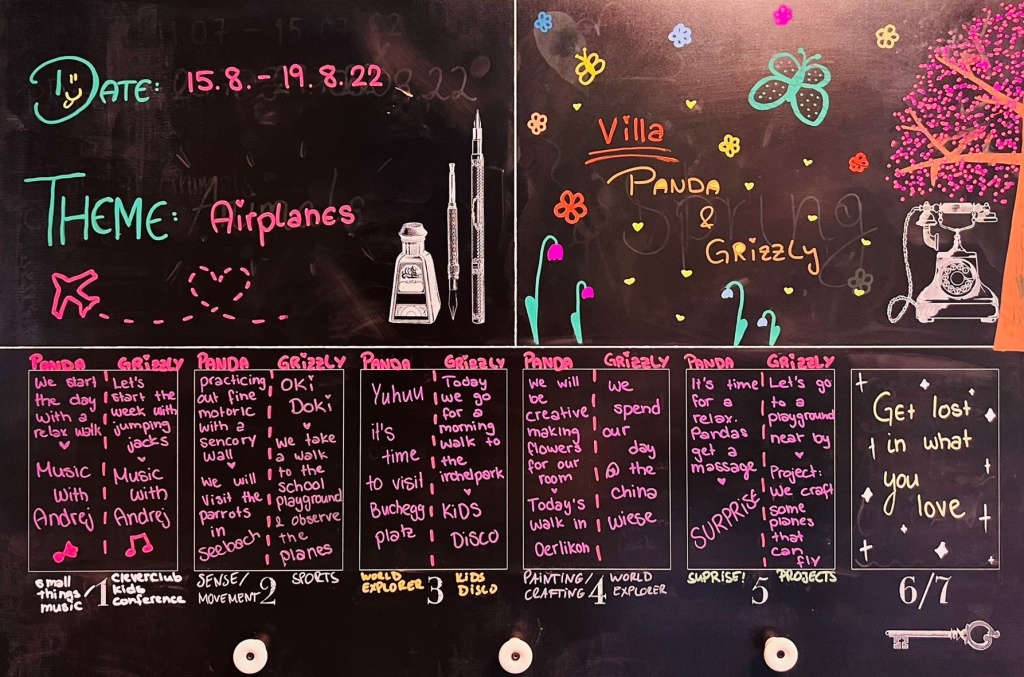 DATE: 15.8. - 19.8.22
THEME: Airplanes
Villa
PANDA
&
GRIZZLY
Spring
PANDA
We start
the day
with a
relax walk
Music
With
Andrej
GRIZZLY
Let's
start the
week with
jumping
jacks
Music
With
Andrej
PANDA
practicing
out fine
motoric
with a
sencory
wall
we will
visit the
parrots
in
seebach
GRIZZLY
OKi
DOKi
we take
a walk
to the
school
playground
& observe
the
planes
PANDA
Yuhuu
it's
time
to visit
Buchegg
platz
GRIZZLY
Today
we go
for a
morning
walk to
the
irchelpark
KiDS
DISCO
PANDA
we will
be
creative
making
flowers
for our
room
Today's
walk in
Oerlikon
GRIZZLY
we
spend
our
day
@ the
china
Wiese
PANDA
It's time
for a
relax.
Pandas
get a
massage
SURPRISE
GRIZZLY
Let's go
to a
playground
near by
Project:
We craft
some
planes
that
can
fly
Get lost
in what
you
love
small
things
music
1
cleverclub
kids
conference
SENSE/
MOVEMENT
2
SPORTS
WORLD
EXPLORER
3
KiDS
DISCO
PAINTING/
CRAFTING
4
WORLD
EXPLORER
SUPRISE!
5
PROJECTS
6/7